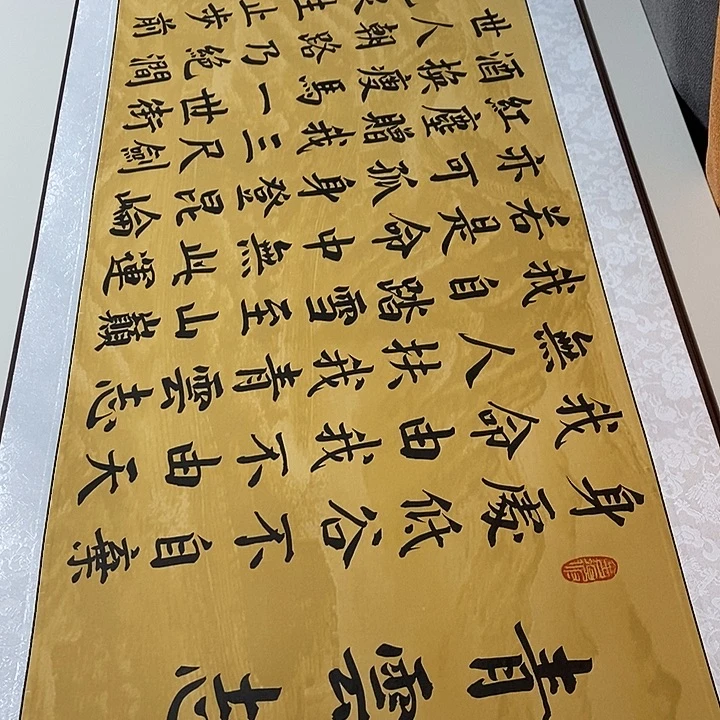 青雲志
身處低谷不自棄
我命由我不由天
無人扶我青雲志
我自踏雪至山巔
若是命中無此運
亦可孤身登昆崙
紅塵贈我三尺劍
酒換瘦馬一世銜
世人朝路乃絕澗
生止步前